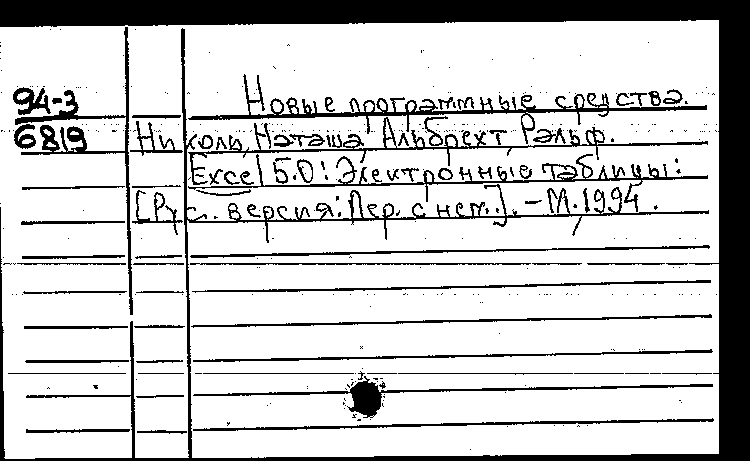 94-3
6819
Новые программные средства.
Николь, Наташа, Альбрехт, Ральф.
Excel 5.0: Электронные таблицы:
[Рус. версия: Пер. с нем.]. - М., 1994.